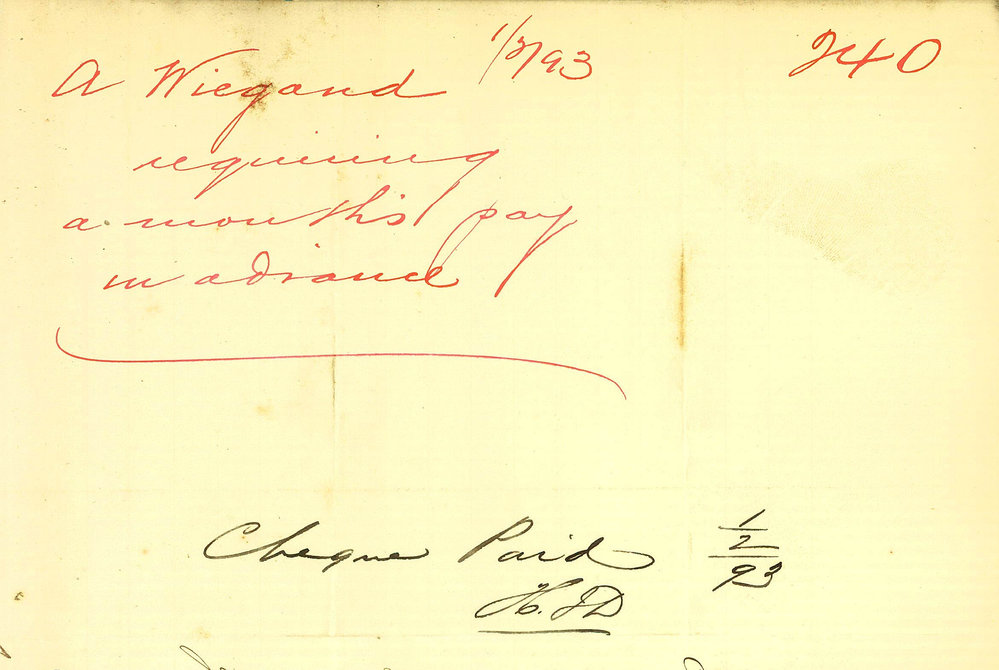 A Wiegand 1/2/93 240
requiring
a month's pay
in advance
Cheque Paid 1/2/93
H. JD